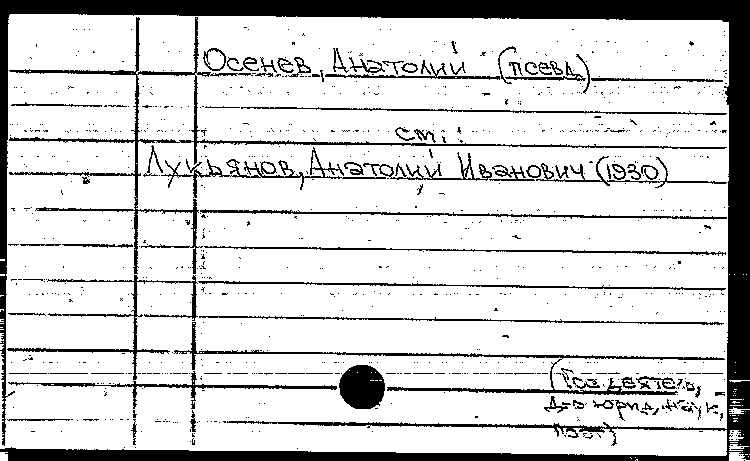 Осенев, Анатолий (псевд.)
см.:
Лукьянов, Анатолий Иванович (1930)
(Гос. деятель,
д-р юрид. наук,
поэт)